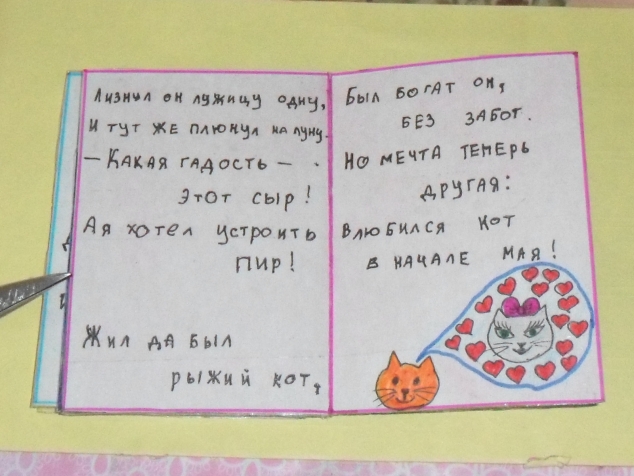 Лизнул он лужицу одну,
И тут же плюнул на луну.
— Какая гадость —
этот сыр!
А я хотел устроить
пир!
Жил да был
рыжий кот,
Был богат он,
без забот.
Но мечта теперь
другая:
Влюбился кот
в начале мая!